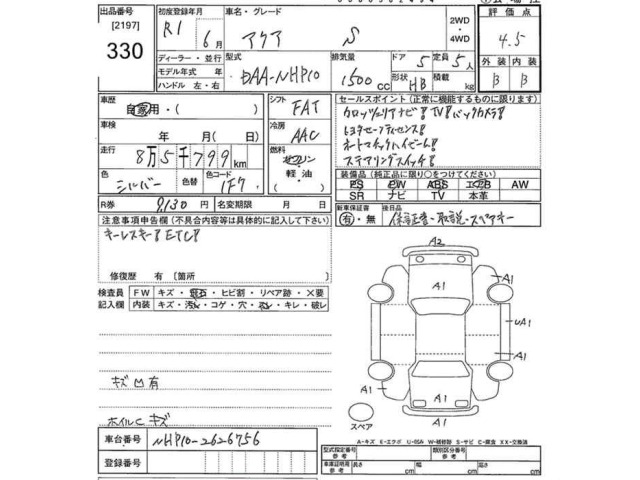 出品番号 初度登録年月 車名・グレード 2WD 評価点
[2197] R1 6月 アクア S 4WD 4.5
330 ディーラー・並行 型式 排気量 ドア 5 定員 5人 外装 内装
モデル年式 年 DAA-NHP10 1500cc 形状 HB 積載 kg B B
ハンドル 左・右
車歴 自家用・( ) シフト FAT セールスポイント(正常に機能するものに限ります)
車検 年 月(日) 冷房 AAC カロッツェリアナビ! TV! バックカメラ!
走行 8万5千799km 燃料 ガソリン 軽油 ( ) トヨタセーフティセンス!
色 シルバー 色替 色コード 1F7 オートマチックハイビーム!
ステアリングスイッチ!
装備品(純正品に限り○をつけてください)
PS PW ABS エアB AW
SR ナビ TV 本革
R券 9,130円 名変期限 月 日
新車保証書 後日品
有・無 保証書・取説・スペアキー
注意事項申告欄(不具合内容等は具体的に記入して下さい)
キーレスキー! ETC!
修復歴 有〔箇所 〕
検査員 FW キズ・飛石・ヒビ割・リペア跡・×要
記入欄 内装 キズ・汚れ・コゲ・穴・スレ・キレ・破レ
A2
A1
A1
A1
UA1
A1
A1
A1
A1
A1
A2
スペア
キズ凹有
ホイルC キズ
車台番号 NHP10-2626756
登録番号
A-キズ E-エクボ U-凹み W-補修跡 S-サビ C-腐食 XX-交換済
型式指定番号 参考 類別区分番号 参考
車庫証明用 参考 長さ cm 幅 cm 高さ cm